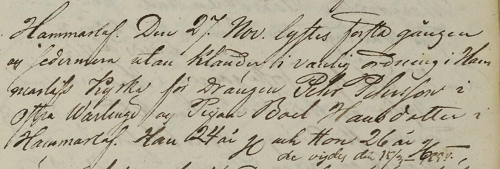 Hammarlöf. Den 27. Nov. lystes första gången
og sedermera utan klander i vanlig ordning i Ham
marlöfs Kyrka för Drängen Pehr Pehrsson i
Östra Värlinge og Pigan Boel Hansdotter i
Hammarlöf. Han 24 år g och Hon 26 år g
de vigdes d.